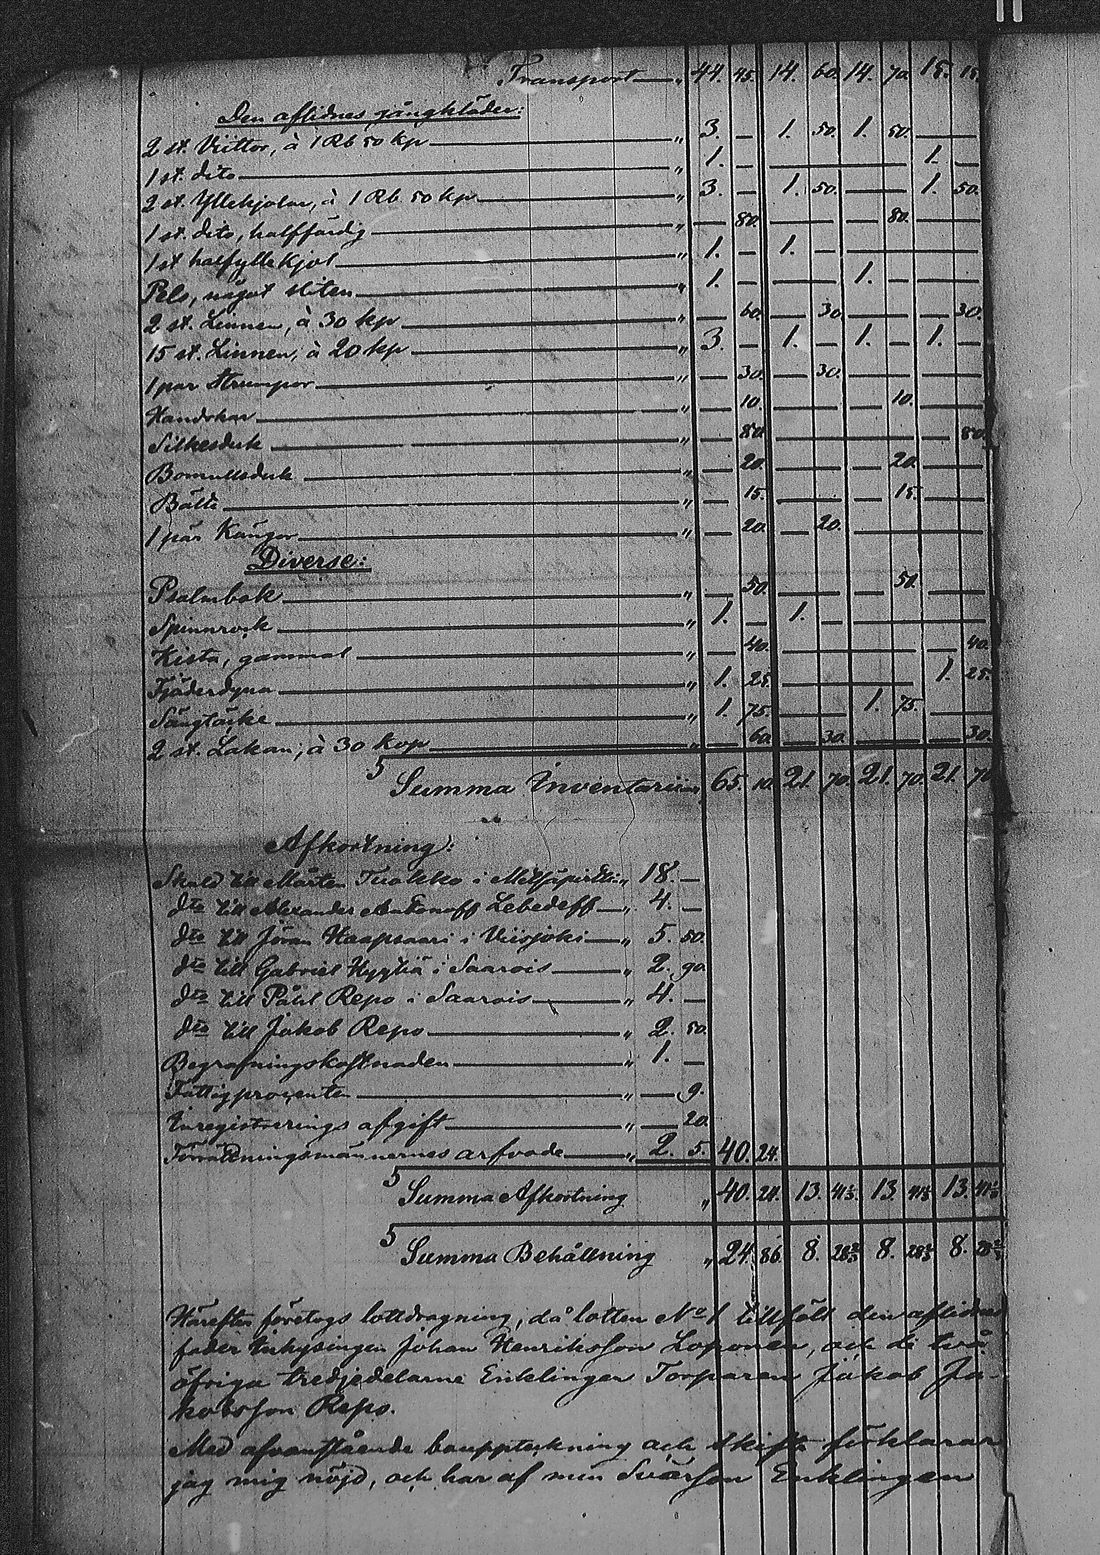 Transport „ 44. 45. 14. 60. 14. 70. 15. 15.
Den aflidnes gångkläder:
2 st. Viittor, à 1 Rb 50 kp „ 3. — 1. 50. 1. 50. —
1 st. dito „ 1. — — — 1. —
2 st. Yllekjolar, à 1 Rb. 50 kp „ 3. — 1. 50. — 1. 50.
1 st. dito, halffärdig „ — 80. — — 80. —
1 st halfyllekjol „ 1. — 1. — — —
Pels, något sliten „ 1. — — 1. — —
2 st. Linnen, à 30 kp „ — 60. — 30. — — 30.
15 st. Linnen, à 20 kp „ 3. — 1. — 1. — 1. —
1 par Strumpor „ — 30. — 30. — —
Handskar „ — 10. — — 10. —
Silkesduk „ — 80. — — 80.
Bomullsduk „ — 20. — — 20. —
Bälte „ — 15. — — 15. —
1 par Kängor „ — 20. — 20. — —
Diverse:
Psalmbok „ — 50. — — 50. —
Spinnrock „ 1. — 1. — — —
Kista, gammal „ — 40. — — — 40.
Fjäderdyna „ 1. 25. — — 1. 25.
Sängtäcke „ 1. 75. — 1. 75. —
2 st. Lakan, à 30 kop „ — 60. — 30. — — 30.
S Summa Inventarium 65. 10. 21. 70. 21. 70. 21. 70
Afkortning:
Skuld till Mårten Tuokko i Metsäpirtti „ 18. —
dto till Alexander Antonoff Lebedeff „ 4. —
dto till Jöran Haapsaari i Viisjoki „ 5. 50.
dto till Gabriel Hyytiä i Saarois „ 2. 90.
dto till Påhl Repo i Saarois „ 4. —
dto till Jakob Repo „ 2. 50.
Begrafningskostnaden „ 1. —
Fattigprocenten „ — 9.
Inregistrerings afgift „ — 20.
Förrättningsmännernes arfvode „ 2. 5. 40. 24.
S Summa Afkortning „ 40. 24. 13. 41⅓. 13. 41⅓. 13. 41⅓
S Summa Behållning „ 24. 86. 8. 28⅔ 8. 28⅔. 8. 28⅔
Härefter företogs lottdragning, då lotten No 1 tillföll den aflidnes
fader Inhysingen Johan Henriksson Loponen, och de två
öfriga tredjedelarne Enklingen Torparen Jakob Ja-
kobsson Repo.
Med ofvanstående bouppteckning och skifte förklarar
jag mig nöjd, och har af min Svärson Enklingen